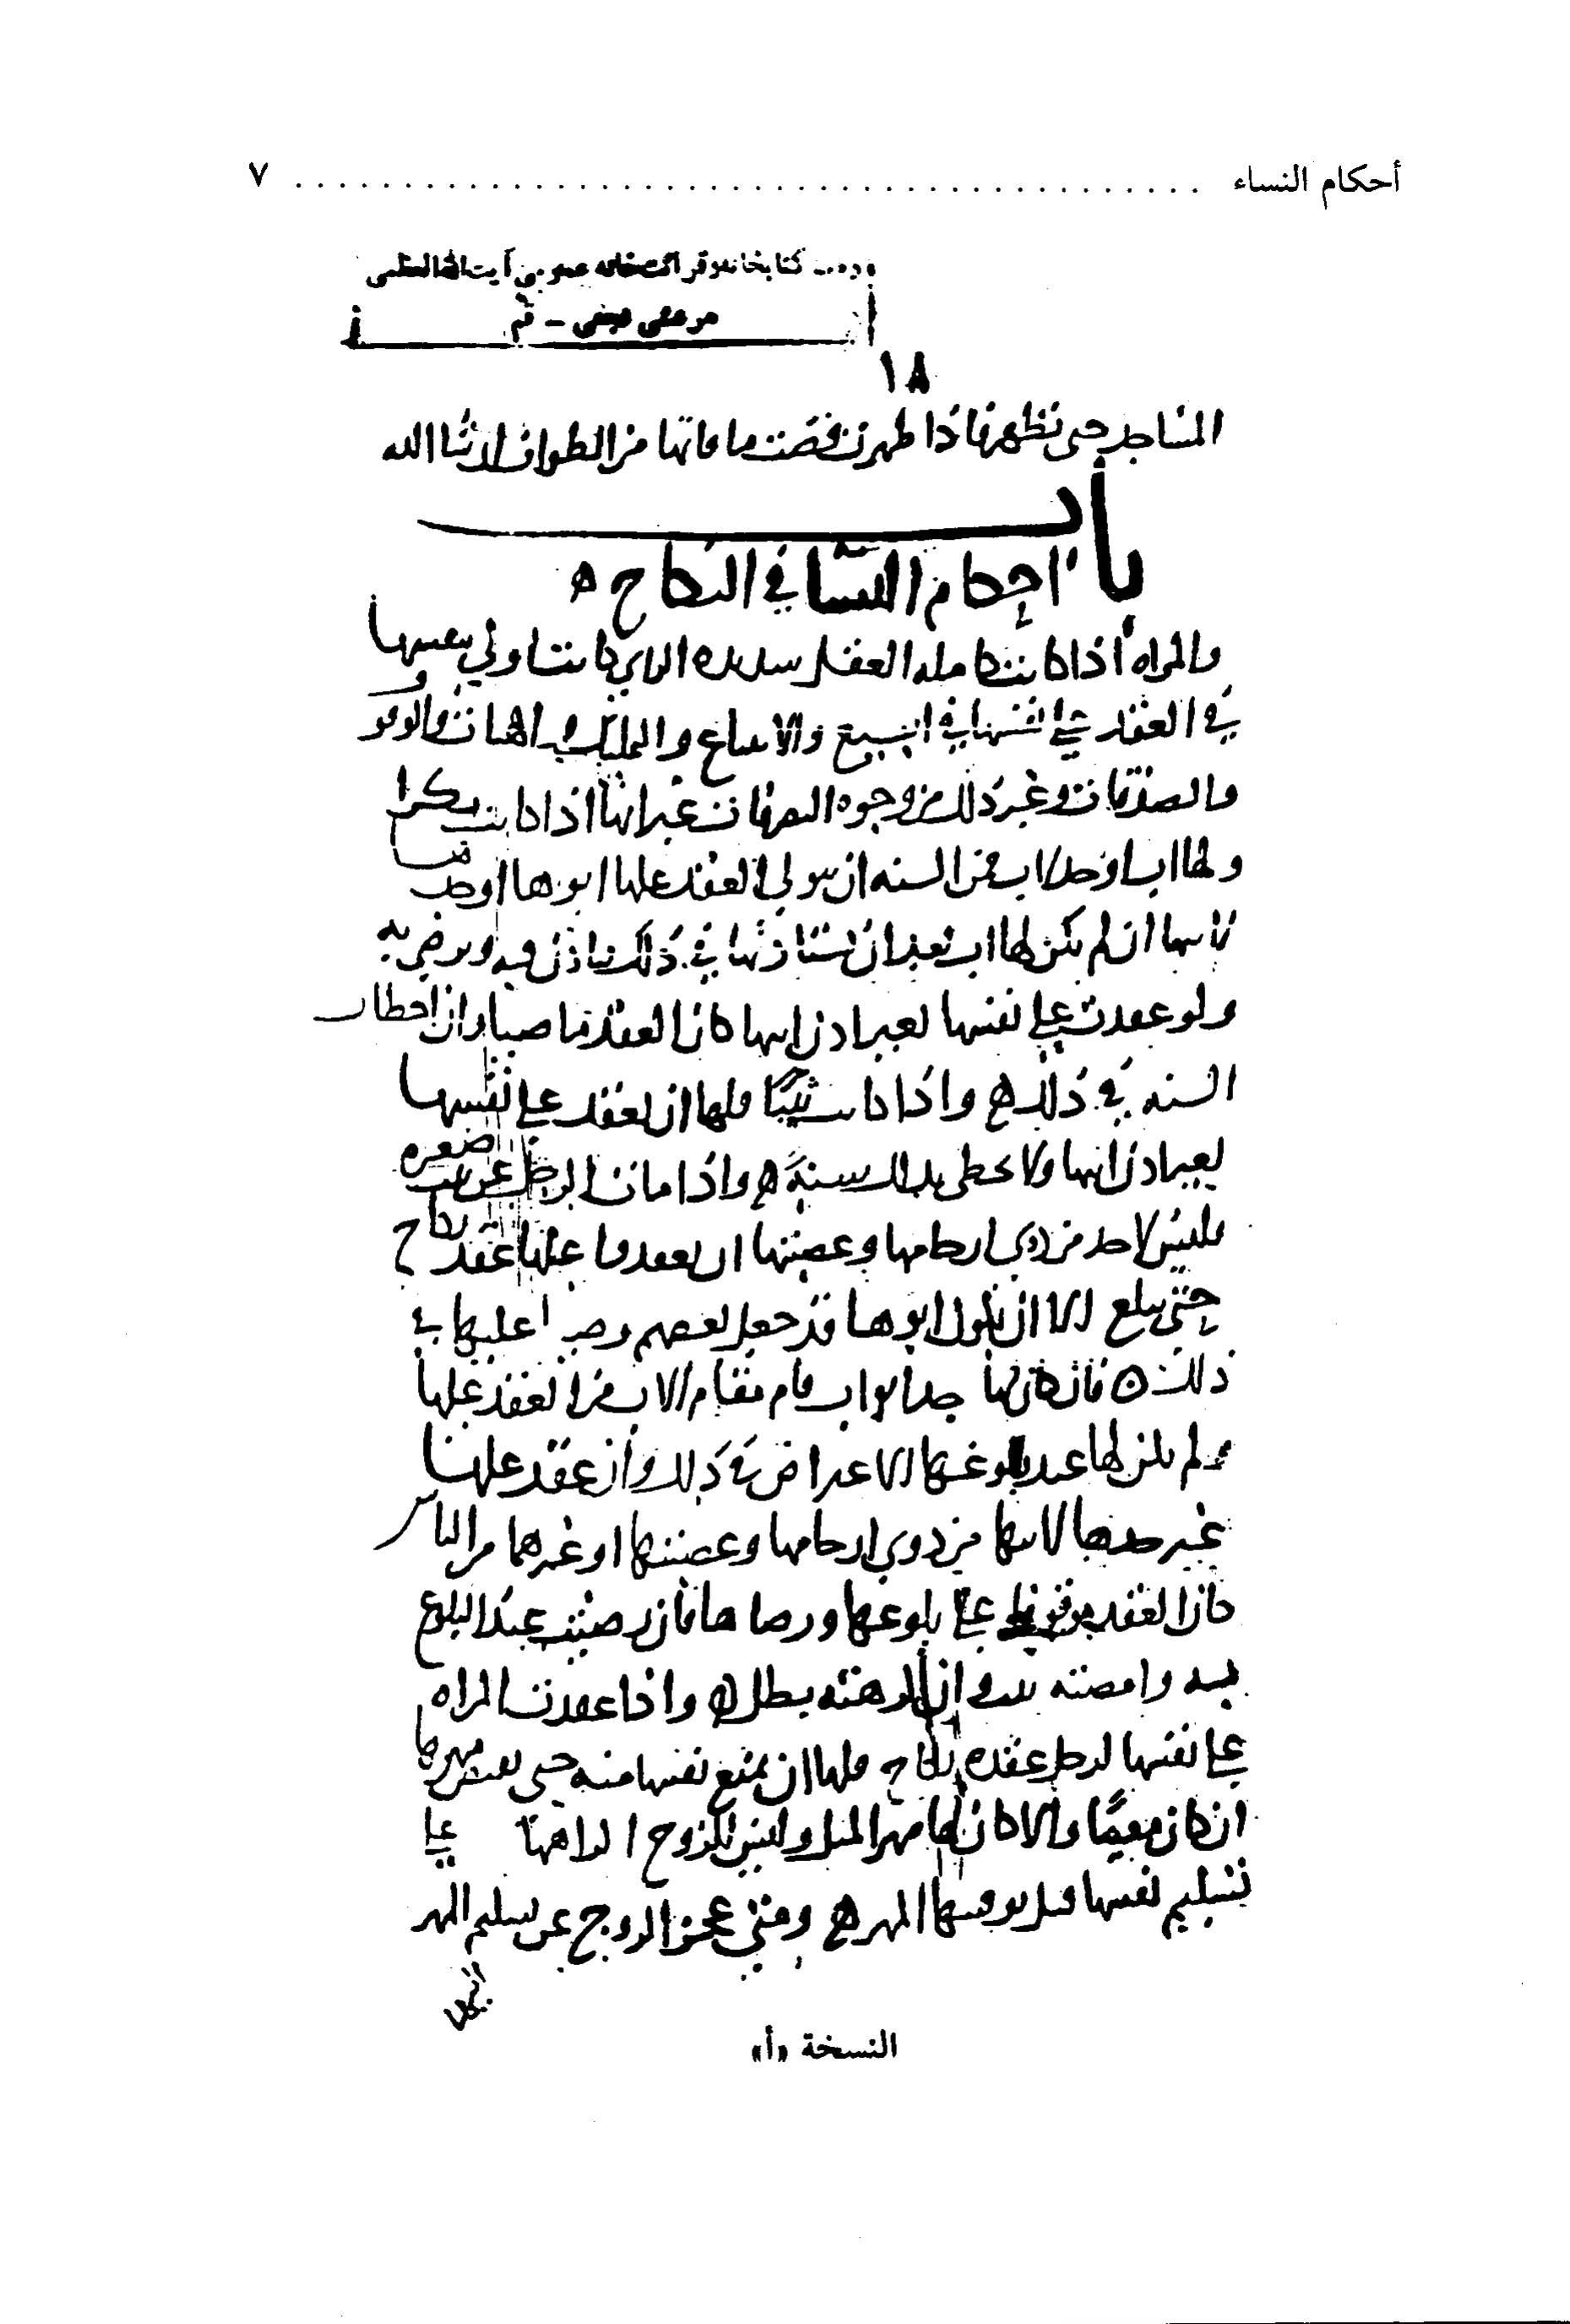 أحكام النساء ........................................ ٧
كتابخانه وقرائت خانه عمومى آيت الله العظمى
مرعشى نجفى - قم
١٨
المساجد حتى تطهر فاذا طهرت قضت ما فاتها من الطواف ان شا الله
باب
احكام النسا في النكاح
والمراه اذا كانت كامله العقل سديده الراي كانت اولي بنفسها
في العقد على نفسها في البيع والابتياع والتمليك والهبات والوقوف
والصدقات وغير ذلك من وجوه التصرفات غير انها اذا كانت بكرا
ولها اب او جد لاب فمن السنه ان يتولى العقد عليها ابوها او جدها
لابيها ان لم يكن لها اب بعد ان يستاذنها في ذلك فتاذن فيه وترضى به
ولو عقدت على نفسها بغير اذن ابيها كان العقد ماضيا وان اخطات
السنه في ذلك ه واذا كانت ثيبا فلها ان تعقد على نفسها
بغير اذن ابيها ولا تخطى بذلك سنة ه واذا مات الرجل عن بنت صغيره
فليس لاحد من ذوي ارحامها وعصبتها ان يعقدوا عليها عقد نكاح
حتى تبلغ الا ان يكون ابوها قد جعل لبعضهم وصيا عليها في
ذلك ه فان كان لها جد ابو اب قام مقام الاب في العقد عليها
ولم يكن لها عند بلوغها الاعتراض في ذلك وان عقد عليها
غير جدها لابيها من ذوي ارحامها وعصبتها او غيرهما من الناس
كان العقد موقوفا على بلوغها ورضاها فان رضيت عند البلوغ
به وامضته ثبت وان كرهته بطل ه واذا عقدت المراه
على نفسها لرجل عقده نكاح فلها ان تمنع نفسها منه حتى تقبض مهرها
ان كان معينا والا كان لها مهر المثل وليس للزوج اكراهها على
تسليم نفسها قبل توفيتها المهر ه ومتى عجز الزوج عن تسليم المهر
النسخة «أ»